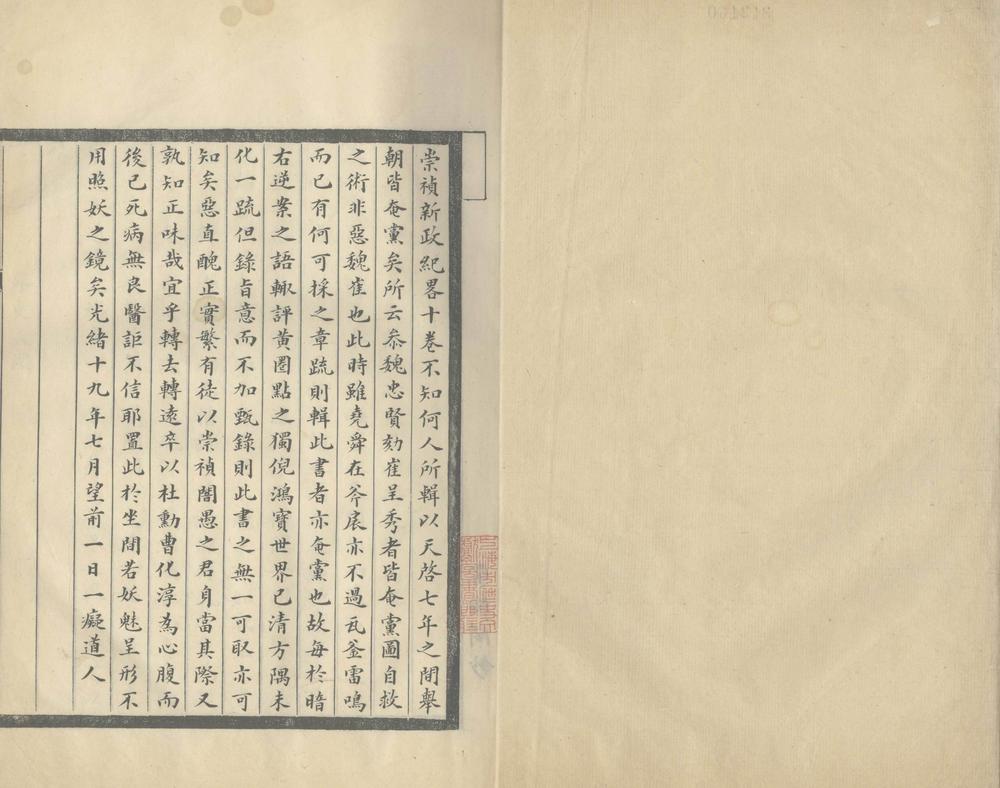 崇禎新政紀畧十卷不知何人所輯以天啓七年之間舉
朝皆奄黨矣所云叅魏忠賢劾崔呈秀者皆奄黨圖自救
之術非惡魏崔也此時雖堯舜在斧扆亦不過瓦釜雷鳴
而已有何可採之章疏則輯此書者亦奄黨也故每於暗
右逆案之語輙評黃圈點之獨倪鴻寶世界已清方隅未
化一疏但錄旨意而不加甄錄則此書之無一可取亦可
知矣惡直醜正實繁有徒以崇禎闇愚之君身當其際又
孰知正味哉宜乎轉去轉遠卒以杜勳曹化淳為心腹而
後已死病無良醫詎不信耶置此於坐間若妖魅呈形不
用照妖之鏡矣光緒十九年七月望前一日一癡道人